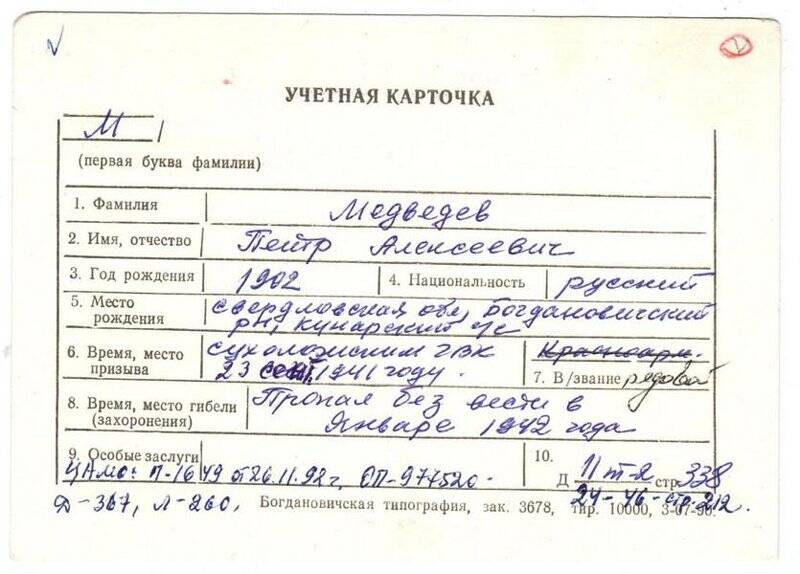 УЧЕТНАЯ КАРТОЧКА
М
(первая буква фамилии)
1. Фамилия Медведев
2. Имя, отчество Петр Алексеевич
3. Год рождения 1902 4. Национальность русский
5. Место рождения свердловская обл, Богдановичский
рн, кунарский с/с
6. Время, место призыва сухоложским ГВК
23 сент. 1941 году.
Красноарм.
7. В/звание рядовой
8. Время, место гибели (захоронения) Пропал без вести в
Январе 1942 года
9. Особые заслуги
ЦАМО: П-1649 от 26.11.92 г, ОП-977520.
10.
Д 11 т-2 стр 338
24-46-стр.212.
Д-367, Л-260,
Богдановичская типография, зак. 3678, тир. 10000, 3-07-90.